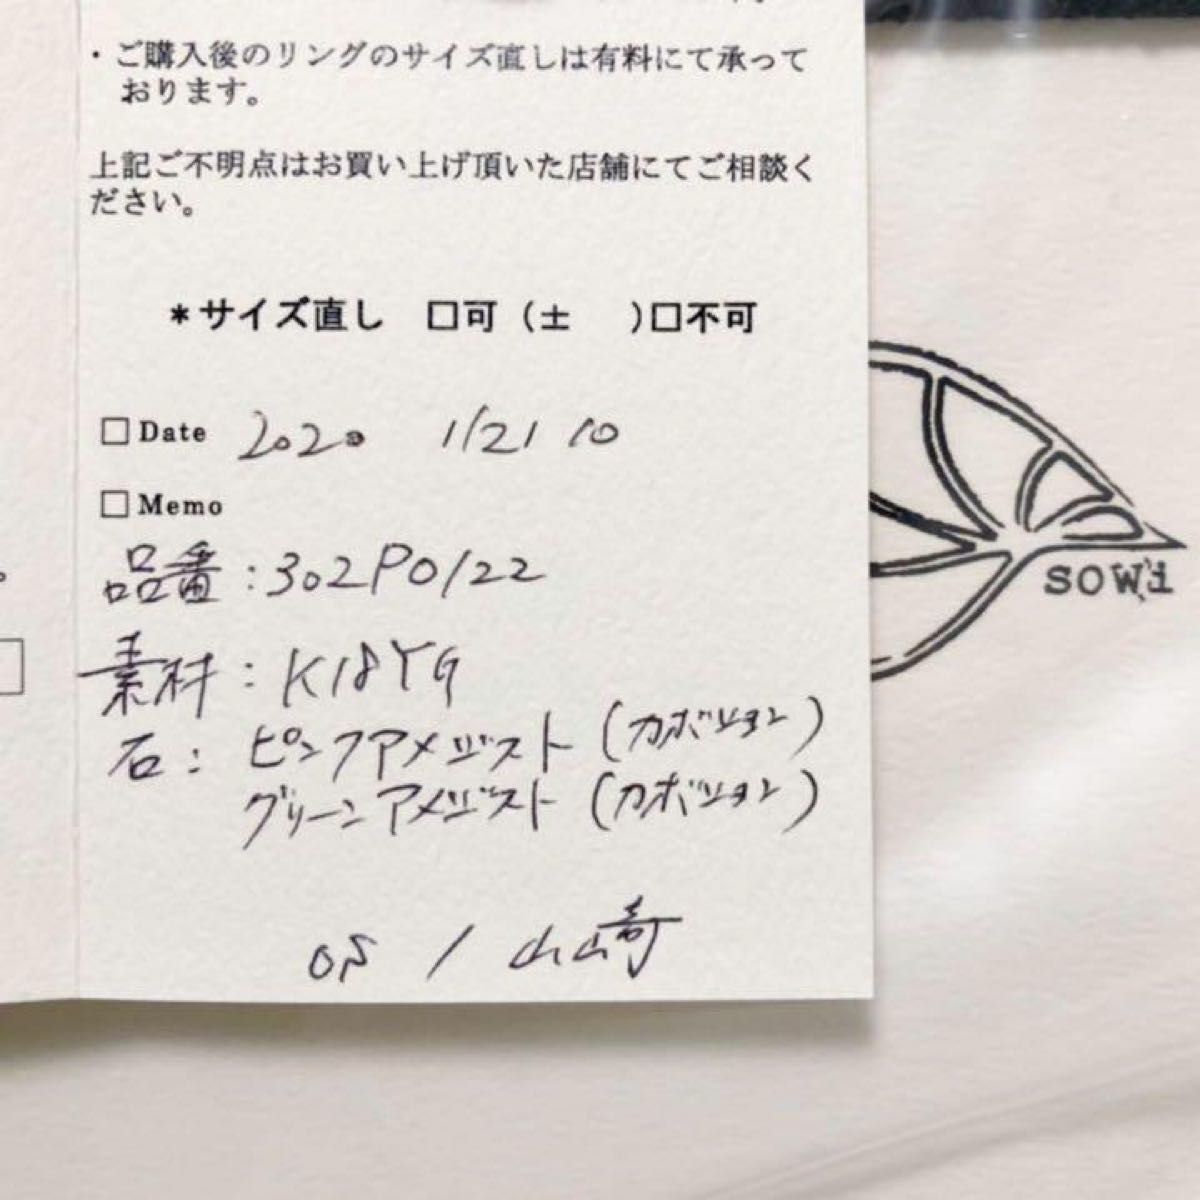 ・ご購入後のリングのサイズ直しは有料にて承って
おります。
上記ご不明点はお買い上げ頂いた店舗にてご相談く
ださい。
＊サイズ直し　□可（±　　）□不可
□ Date 2020 1/21 10
□ Memo
品番：302P0122
素材：K18YG
石：ピンクアメジスト（カボション）
グリーンアメジスト（カボション）
/ 山崎
sowi